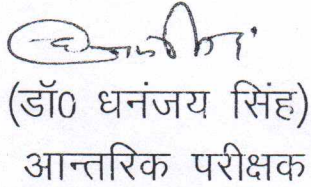 (डॉ0 धनंजय सिंह)
आन्तरिक परीक्षक